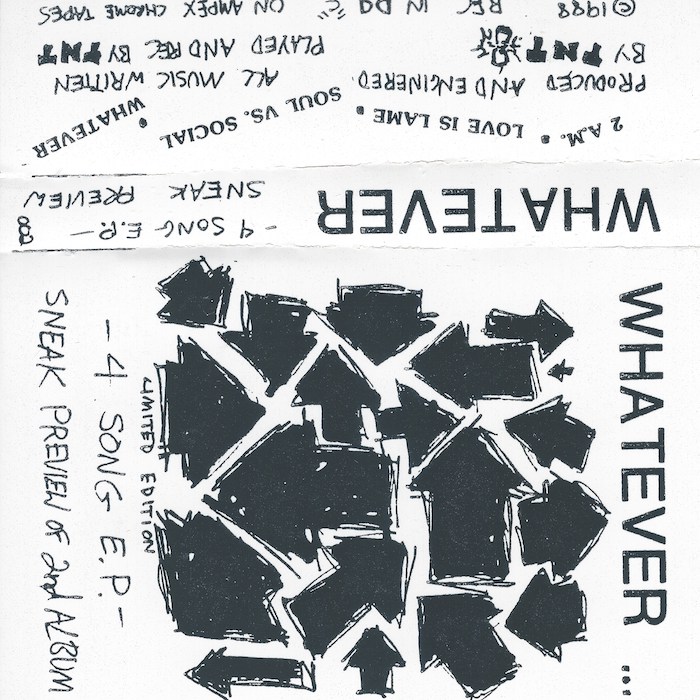 WHATEVER ...
-4 SONG E.P.-
LIMITED EDITION
SNEAK PREVIEW OF 2nd ALBUM
WHATEVER
-4 SONG E.P.- 002
SNEAK PREVIEW
2 A.M. • LOVE IS LAME • SOUL VS. SOCIAL • WHATEVER
PRODUCED AND ENGINERED
BY TNT
ALL MUSIC WRITTEN
PLAYED AND REC BY TNT
©1988 REC IN DA "C" ON AMPEX CHROME TAPES